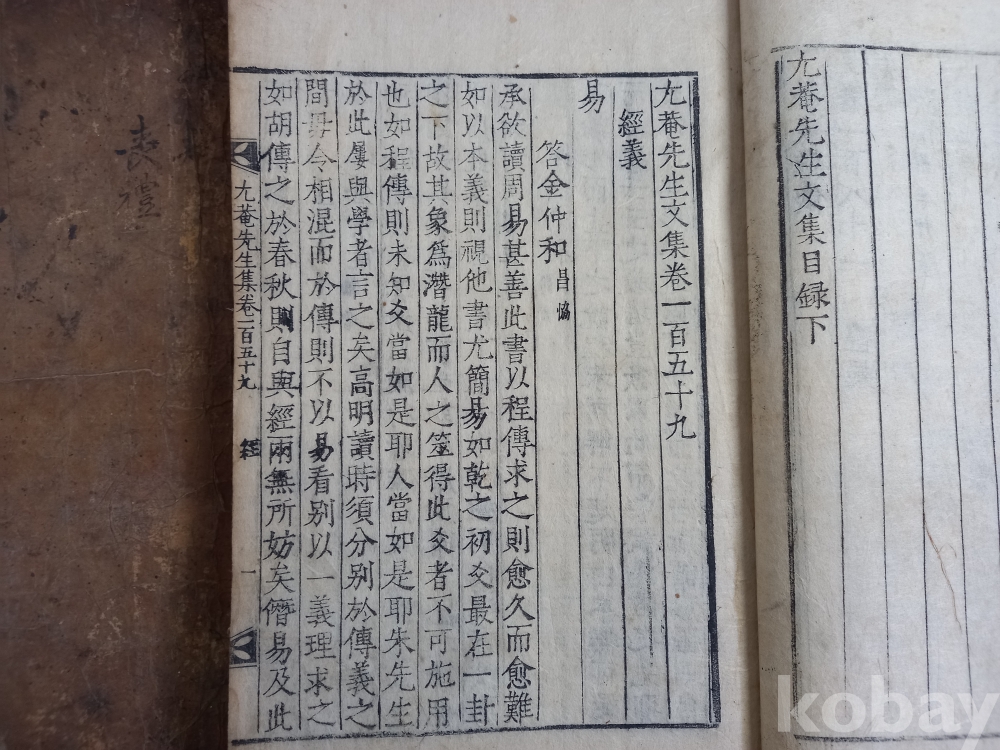 尤菴先生文集目録下
尤菴先生文集卷一百五十九
經義
易
答金仲和 昌恊
承欲讀周易甚善此書以程傳求之則愈久而愈難
如以本義則視他書尤簡易如乾之初爻最在一卦
之下故其象爲潛龍而人之筮得此爻者不可施用
也如程傳則未知爻當如是耶人當如是耶朱先生
於此屢與學者言之矣高明讀時須分别於傳義之
間毋令相混而於傳則不以易看别以一義理求之
如胡傳之於春秋則自與經兩無所妨矣僭易及此
尤菴先生集卷一百五十九
經
一
喪禮
kobay